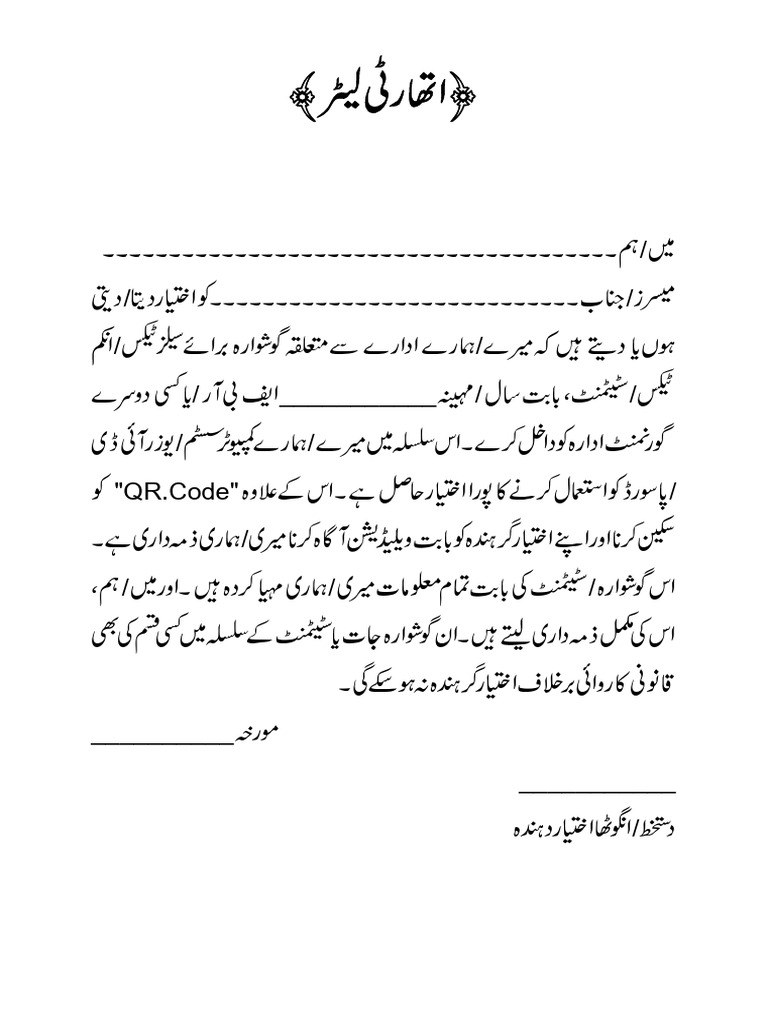 ﴿اتھارٹی لیٹر﴾
میں/ہم ---------------------------------------
میسرز/جناب ----------------------------کو اختیار دیتا/دیتی
ہوں یا دیتے ہیں کہ میرے/ہمارے ادارے سے متعلقہ گوشوارہ برائے سیلز ٹیکس/انکم
ٹیکس/سٹیٹمنٹ، بابت سال/مہینہ____________ایف بی آر/یا کسی دوسرے
گورنمنٹ ادارہ کو داخل کرے۔ اس سلسلہ میں میرے/ہمارے کمپیوٹر سسٹم/یوزر آئی ڈی
/پاسورڈ کو استعمال کرنے کا پورا اختیار حاصل ہے۔ اس کے علاوہ "QR.Code" کو
سکین کرنا اور اپنے اختیار گرہندہ کو بابت ویلیڈیشن آگاہ کرنا میری/ہماری ذمہ داری ہے۔
اس گوشوارہ/سٹیٹمنٹ کی بابت تمام معلومات میری/ہماری مہیا کردہ ہیں۔ اور میں/ہم،
اس کی مکمل ذمہ داری لیتے ہیں۔ ان گوشوارہ جات یا سٹیٹمنٹ کے سلسلہ میں کسی قسم کی بھی
قانونی کاروائی برخلاف اختیار گرہندہ نہ ہو سکے گی۔
مورخہ___________
____________
دستخط/انگوٹھا اختیار دہندہ